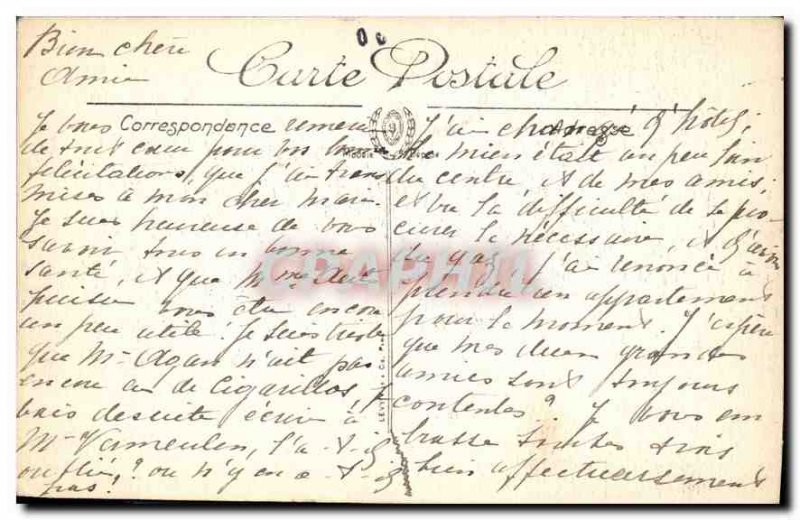 Bien chère
Amie
Carte Postale
Correspondance
Adresse
Je vous remercie
de tout cœur pour vos bonnes
félicitations, que j'ai trans
mises à mon cher mari.
Je suis heureuse de vous
savoir tous en bonne
santé, et que
puisse vous être encore
un peu utile. Je suis triste
que Mr Agan n'ait pas
encore eu de Cigarillos, je
vais de suite écrire à
Mr Vermeulen, l'a-t-il
oublié? ou n'y en a-t-il
pas!
J'ai changé d'hôtel;
le mien était un peu loin
du centre, et de mes amis;
et vu la difficulté de se pro
curer le nécessaire, et d'avoir
du gaz, j'ai renoncé à
prendre un appartement
pour le moment. J'espère
que mes deux grandes
amies sont toujours
contentes? Je vous em
brasse toutes trois
bien affectueusement
LEVY
CPAPHIL